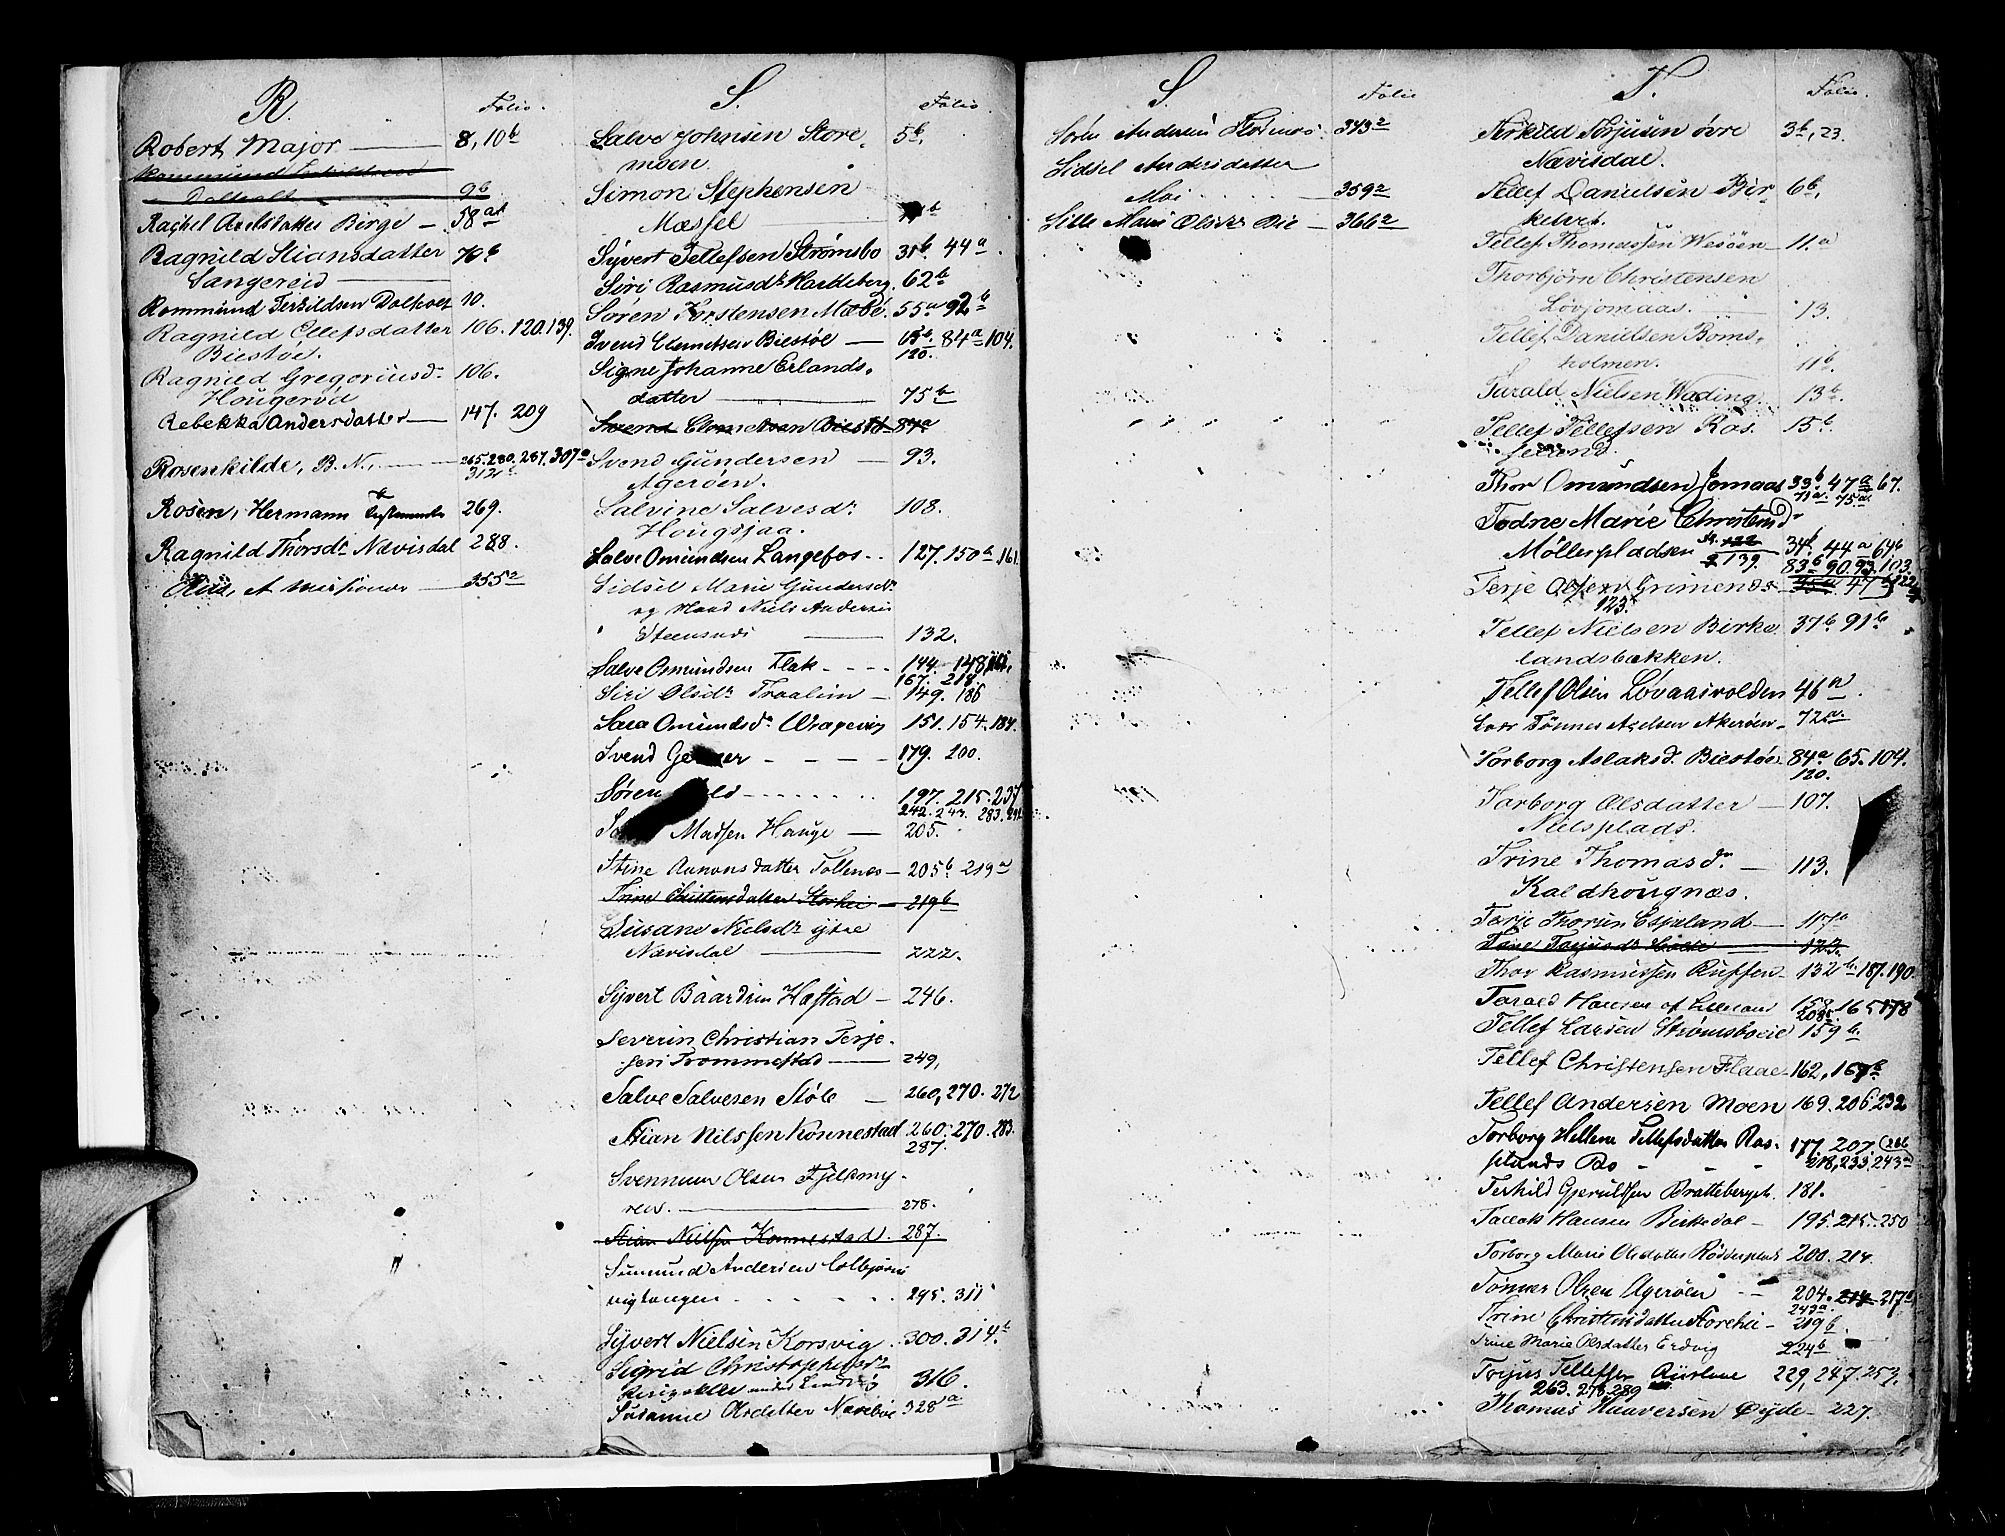 R. Folio.
Robert Major 8, 10b
9b
Rachel Axelsdatter Birge 58a
Ragnild Stiansdatter 76b
Sangereid
Rommund Terkildsen Dalhvet 10.
Ragnild Ellefsdatter 106. 120. 139.
Biestøl.
Ragnild Gregoriusdr 106.
Hougerød
Rebekka Andersdatter 147. 209
Rosenkilde, B. N. 265. 280. 287. 307a
312a
Rosen, Hermann 269.
Ragnild Thorsdr Nævisdal 288.
355a
S. Folio
Salve Johnsen Store 5b,
moen.
Simon Stephensen
Mæsel
Syvert Tellefsen Strømsbo 31b 44a.
Siri Rasmusdr Harkeberg 62b
Søren Torstensen Mæbø 55a 92b
Svend Clemetsen Biestøl 84a 104.
120.
Signe Johanne Erlands-
datter 75b
Svend Clemetsen Biestøl 84a
Svend Gundersen 93.
Agerøen.
Salvine Salvesdr 108.
Hougsjaa.
Salve Omundsen Langefos 127. 150a 161.
Sidsel Marie Gundersdr
og Mand Niels Andersen
Steensnæs 132.
Salve Osmundsen Flak 144. 148.
167. 218.
Siri Olsdr Traalim 149. 186
Sara Omundsdr Wragevig 151. 154. 184.
Svend 179. 200.
Søren 197. 215. 237
242. 283.
Madsen Hauge 205.
Stine Aanonsdatter Tollenæs 205b 219a
Trine Christensdatter Storhei 219b
Susane Nielsdr ytre
Nævisdal 222.
Syvert Baardsen Hæstad 246.
Severin Christian Terje-
sen Trommestad 249,
Salve Salvesen Støle 260, 270. 272
Stian Nilssen Konnestad 260. 270. 283.
287.
Svennum Olsen Fjeldmy-
ren. 278.
Stian Nielsen Konnestad. 287.
Sumund Andersen Colbjørns
vigtangen 295. 311
Syvert Nielsen Korsvig 300. 314b
Sigrid Christophersdr
under 316.
Susanne Olsdatter Narebøe 328a
S. Folio
Søren Andersen 343a
Sidsel Andersdatter
Moi 359a
Sille Marie Olsdr Bie 366a
T. Folio.
Terkild Torjusen øvre 3b, 23.
Nævisdal.
Tellef Danielsen Bir- 6b,
ketvet.
Tellef Thomassen Wesøen 11a
Thorbjørn Christensen
Løvjomaas. 13.
Tellef Danielsen Boms-
holmen. 11b.
Tarald Nielsen Wading. 13b.
Tellef Tellefsen Ros. 15b.
feland.
Thor Omundsen Jomaas 33b 47a 67.
71a. 75a.
Todne Marie Christensdr
Möllerpladsen 34b 44a 64b
139. 83b 90. 93. 103
Terje Olsen Grimenæs 47
123.
Tellef Nielsen Birke 37b 91b
landsbækken.
Tellef Olsen Løvaasvolden 46a
Tönnes Axelsen Akerøen 72a.
Torborg Aslaksdr Biestøl 84a 65. 104.
120.
Tarborg Olsdatter 107.
Nielsplads.
Trine Thomasdr 113.
Kaldhougnæs.
Terje Thorsen Espeland 117a
Trine Torjusdr 123.
Thor Rasmussen Ruffen 132b 187. 190
Tarald Hansen af Lillesand 158. 165 178
208.
Tellef Larsen Strømsboeie 159b.
Tellef Christensen Flaae 162, 167b
Tellef Andersen Moen 169. 206. 232
Torborg Hellene Tellefsdatter Ros- 177. 207.
218, 233. 243a
Terkild Gjeruldsen Bratteberget 181.
Tallak Hansen Birkedal 195. 215. 250
Torborg Marie Olsdatter 200. 214.
Tønnes Olsen Agerøen 204. 214 217a
243a.
Trine Christensdatter Storehei 219b.
Trine Marie Olsdatter Erdvig 224b
Torjus Tellefsen 229, 247. 253.
263. 278. 289
Thomas Haaversen Øyde 227.